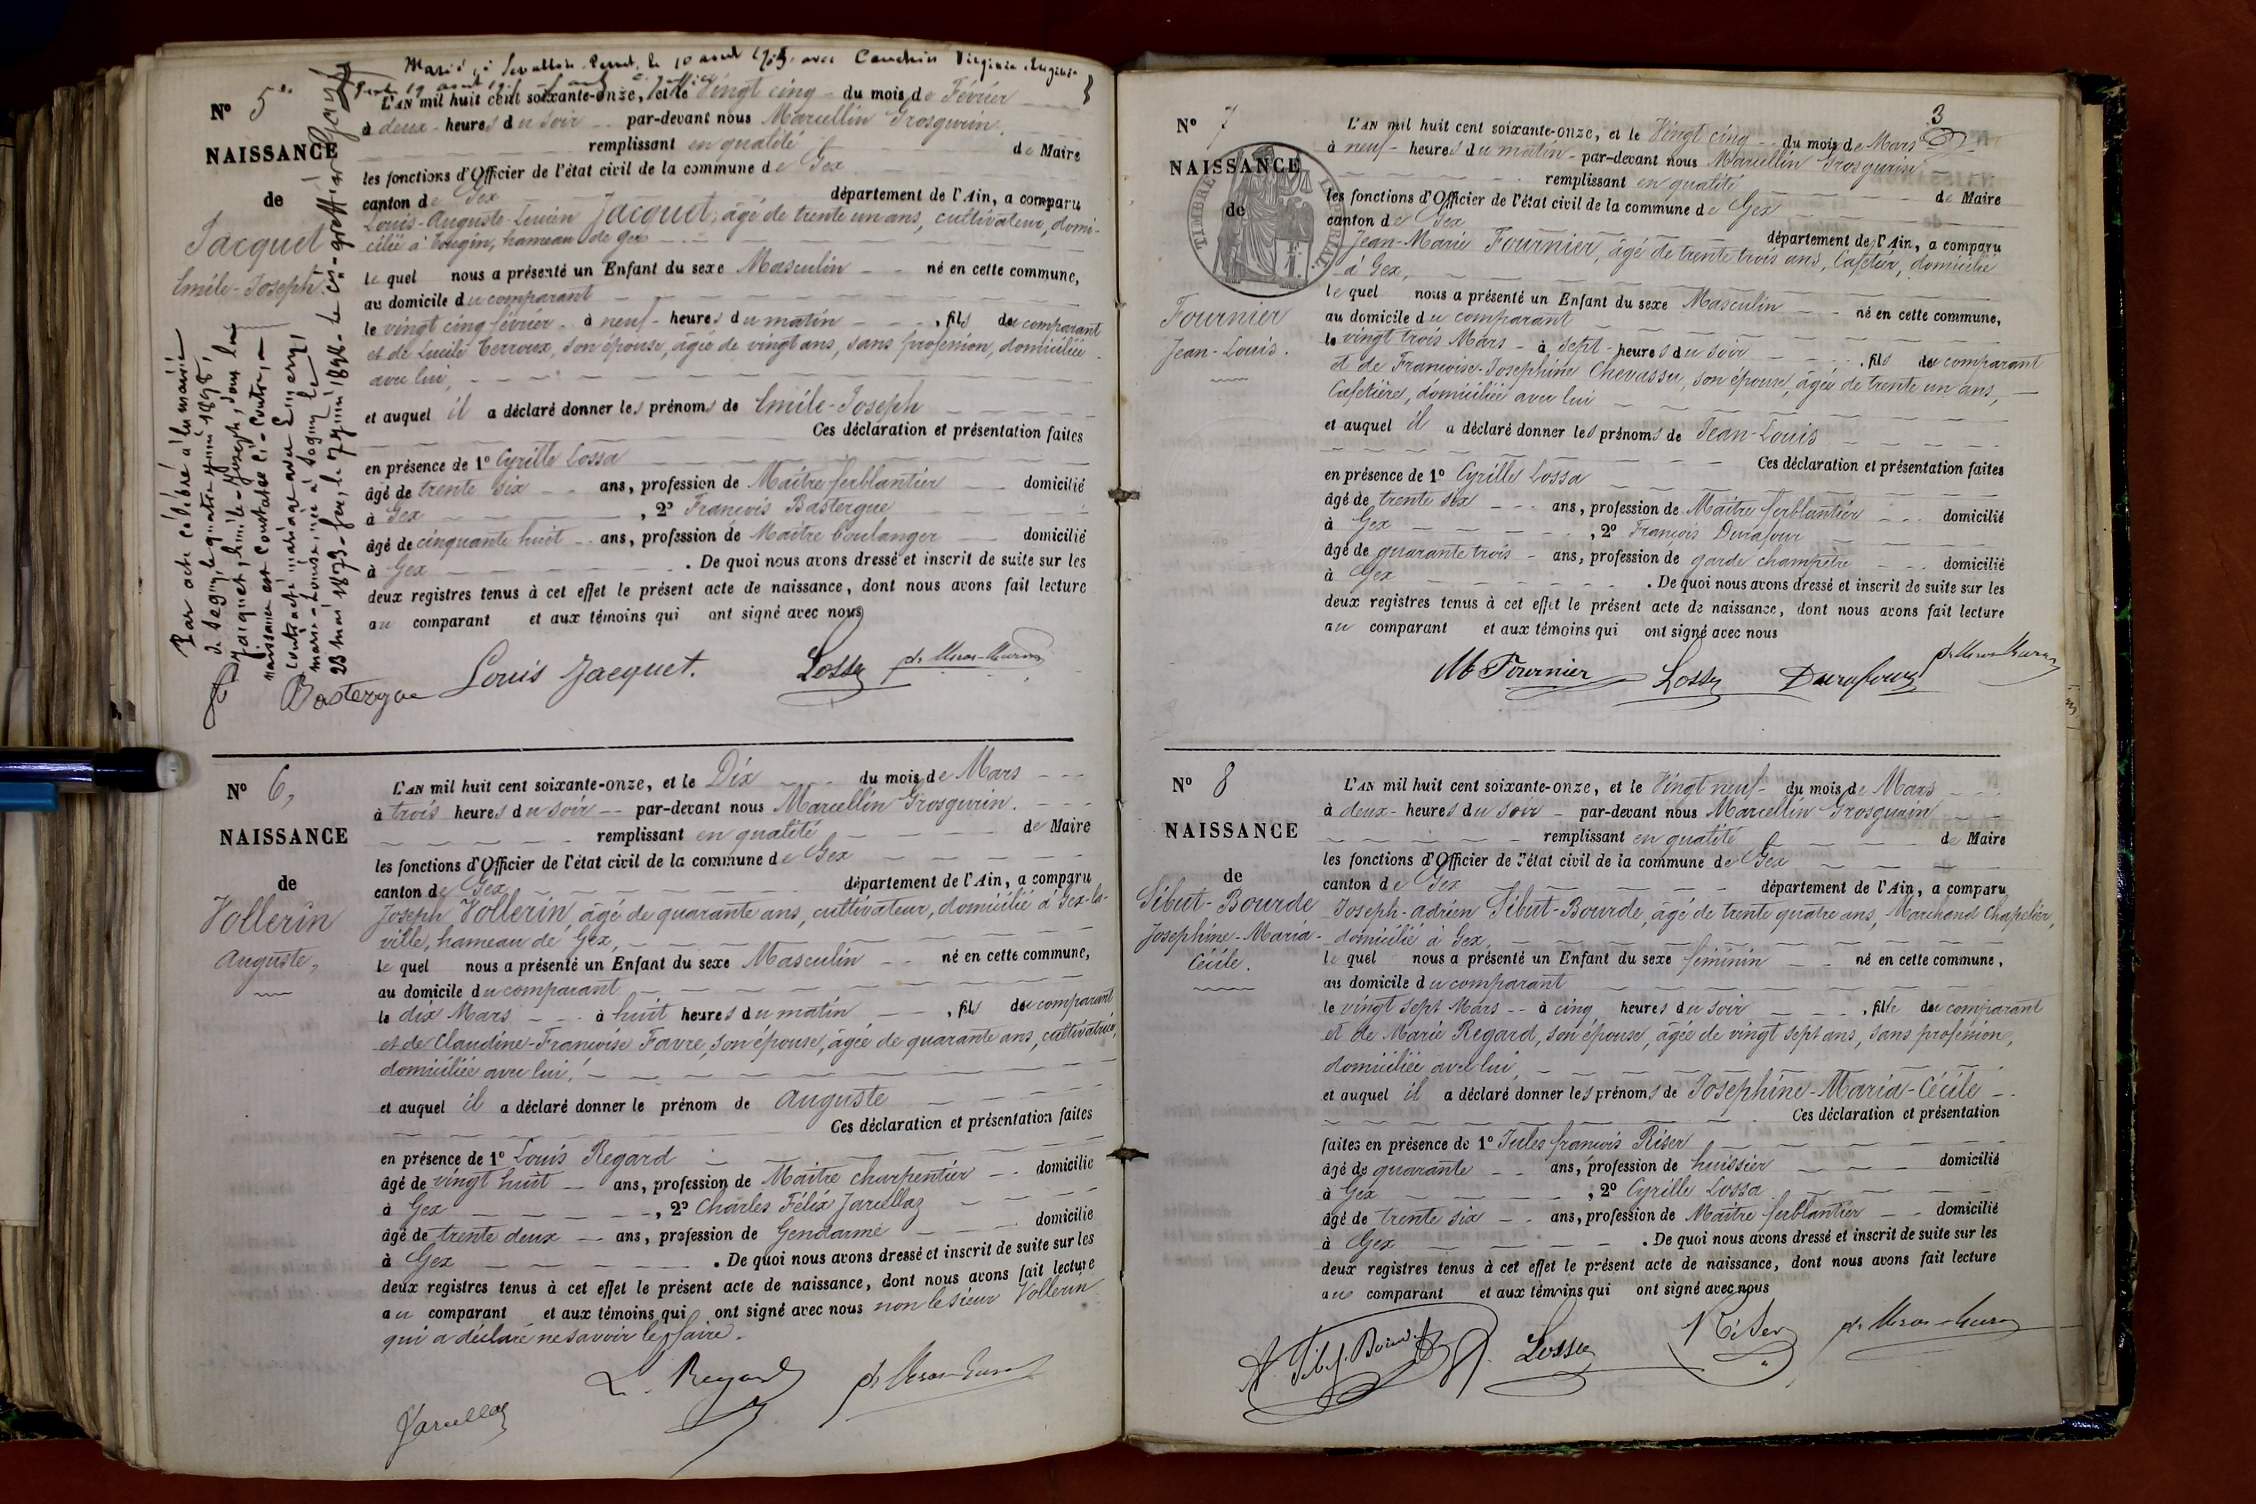 Marié à Levallois-Perret le 10 avril avec Virginie Eugénie
Nº 5
NAISSANCE
de
Jacquet
Emile-Joseph.
Par acte célébré à la mairie
de Segny le quatre juin 1898,
Jacquet, Emile-Joseph, dont la
naissance est constatée ci-contre, a
contracté mariage avec
Marie-Louise, née à Segny le
28 mai 1873. Gex, le 7 juin 1898. Le Cis-greffier
L'AN mil huit cent soixante-onze, et le Vingt cinq du mois de Février
à deux heures du soir par-devant nous Marcellin Grosgurin
remplissant en qualité de Maire
les fonctions d'Officier de l'état civil de la commune de Gex
canton de Gex département de l'Ain, a comparu
Louis-Auguste-Lucien Jacquet, âgé de trente un ans, cultivateur, domi-
cilié à Tougin, hameau de Gex
lequel nous a présenté un Enfant du sexe Masculin né en cette commune,
au domicile du comparant
le vingt cinq février à neuf heures du matin, fils du comparant
et de Lucile Terroux, son épouse, âgée de vingt ans, sans profession, domiciliée
avec lui,
et auquel il a déclaré donner les prénoms de Emile-Joseph
Ces déclaration et présentation faites
en présence de 1º Cyrille Lossa
âgé de trente six ans, profession de Maître ferblantier domicilié
à Gex, 2º François Bastergue
âgé de cinquante huit ans, profession de Maître boulanger domicilié
à Gex. De quoi nous avons dressé et inscrit de suite sur les
deux registres tenus à cet effet le présent acte de naissance, dont nous avons fait lecture
au comparant et aux témoins qui ont signé avec nous
Bastergue Louis Jacquet. Lossa
Nº 6,
NAISSANCE
de
Vollerin
Auguste,
L'AN mil huit cent soixante-onze, et le Dix du mois de Mars
à trois heures du soir par-devant nous Marcellin Grosgurin.
remplissant en qualité de Maire
les fonctions d'Officier de l'état civil de la commune de Gex
canton de Gex département de l'Ain, a comparu
Joseph Vollerin, âgé de quarante ans, cultivateur, domicilié à Gex-la-
ville, hameau de Gex,
lequel nous a présenté un Enfant du sexe Masculin né en cette commune,
au domicile du comparant
le dix Mars à huit heures du matin, fils du comparant
et de Claudine-Françoise Favre, son épouse, âgée de quarante ans, cultivatrice,
domiciliée avec lui,
et auquel il a déclaré donner le prénom de Auguste
Ces déclaration et présentation faites
en présence de 1º Louis Regard
âgé de vingt huit ans, profession de Maître charpentier domicilié
à Gex, 2º Charles Félix Jarcellaz
âgé de trente deux ans, profession de Gendarme domicilié
à Gex. De quoi nous avons dressé et inscrit de suite sur les
deux registres tenus à cet effet le présent acte de naissance, dont nous avons fait lecture
au comparant et aux témoins qui ont signé avec nous non le sieur Vollerin
qui a déclaré ne savoir le faire.
Jarcellaz L. Regard
3
Nº 7
NAISSANCE
de
TIMBRE IMPÉRIAL
Fournier
Jean-Louis.
L'AN mil huit cent soixante-onze, et le Vingt cinq du mois de Mars
à neuf heures du matin par-devant nous Marcellin Grosgurin
remplissant en qualité de Maire
les fonctions d'Officier de l'état civil de la commune de Gex
canton de Gex département de l'Ain, a comparu
Jean-Marie Fournier, âgé de trente trois ans, Cafetier, domicilié
à Gex,
lequel nous a présenté un Enfant du sexe Masculin né en cette commune,
au domicile du comparant
le vingt trois Mars à sept heures du soir, fils du comparant
et de Françoise-Josephine Chevassu, son épouse, âgée de trente un ans,
Cafetière, domiciliée avec lui
et auquel il a déclaré donner les prénoms de Jean-Louis
Ces déclaration et présentation faites
en présence de 1º Cyrille Lossa
âgé de trente six ans, profession de Maître ferblantier domicilié
à Gex, 2º François Durafour
âgé de quarante trois ans, profession de garde champêtre domicilié
à Gex. De quoi nous avons dressé et inscrit de suite sur les
deux registres tenus à cet effet le présent acte de naissance, dont nous avons fait lecture
au comparant et aux témoins qui ont signé avec nous
Fournier Lossa Durafour
Nº 8
NAISSANCE
de
Sibut-Bourde
Josephine-Maria-
Cécile.
L'AN mil huit cent soixante-onze, et le Vingt neuf du mois de Mars
à deux heures du soir par-devant nous Marcellin Grosgurin
remplissant en qualité de Maire
les fonctions d'Officier de l'état civil de la commune de Gex
canton de Gex département de l'Ain, a comparu
Joseph-Adrien Sibut-Bourde, âgé de trente quatre ans, Marchand Chapelier,
domicilié à Gex,
lequel nous a présenté un Enfant du sexe féminin né en cette commune,
au domicile du comparant
le vingt sept Mars à cinq heures du soir, fille du comparant
et de Marie Regard, son épouse, âgée de vingt sept ans, sans profession,
domiciliée avec lui,
et auquel il a déclaré donner les prénoms de Josephine-Maria-Cécile
Ces déclaration et présentation
faites en présence de 1º Jules François Riser
âgé de quarante ans, profession de huissier domicilié
à Gex, 2º Cyrille Lossa
âgé de trente six ans, profession de Maître ferblantier domicilié
à Gex. De quoi nous avons dressé et inscrit de suite sur les
deux registres tenus à cet effet le présent acte de naissance, dont nous avons fait lecture
au comparant et aux témoins qui ont signé avec nous
Lossa Riser